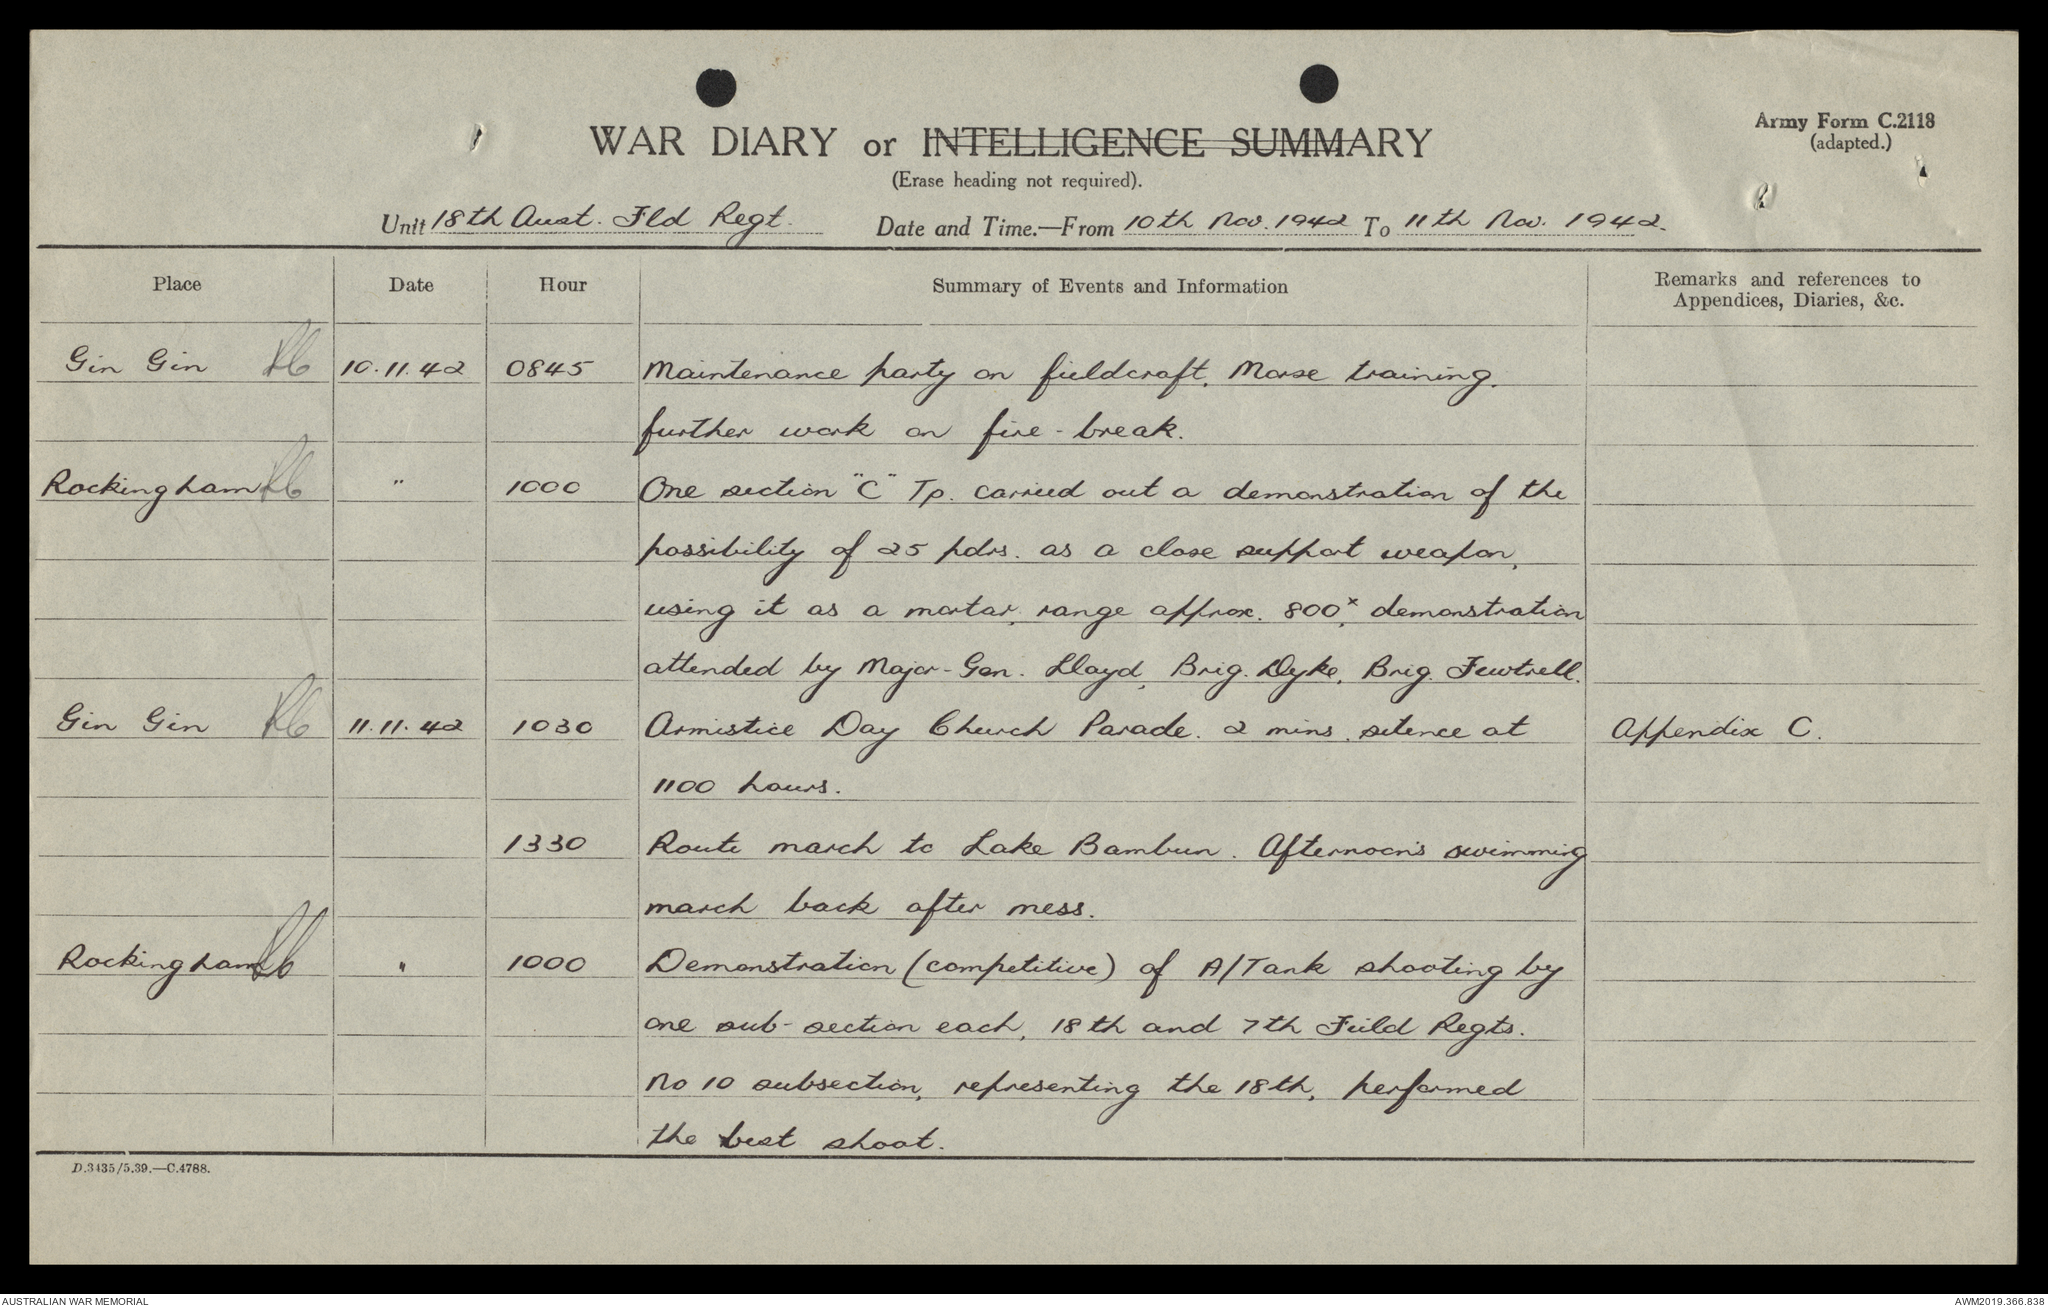 Army Form C.2118
(adapted.)
WAR DIARY or INTELLIGENCE SUMMARY
(Erase heading not required).
Unit 18th Aust. Fld Regt. Date and Time.—From 10th Nov. 1942 To 11th Nov. 1942.
Place Date Hour Summary of Events and Information Remarks and references to
Appendices, Diaries, &c.
Gin Gin 10.11.42 0845 Maintenance party on fieldcraft, Morse training.
further work on fire-break.
Rockingham " 1000 One section "C" Tp. carried out a demonstration of the
possibility of 25 pdrs. as a close support weapon,
using it as a mortar, range approx. 800ˣ, demonstration
attended by Major-Gen. Lloyd, Brig. Dyke, Brig. Fewtrell.
Gin Gin 11.11.42 1030 Armistice Day Church Parade. 2 mins. silence at Appendix C.
1100 hours.
1330 Route march to Lake Bambun. Afternoon's swimming
march back after mess.
Rockingham " 1000 Demonstration (competitive) of A/Tank shooting by
one sub-section each, 18th and 7th Field Regts.
No 10 subsection, representing the 18th, performed
the best shoot.
D.3435/5.39.—C.4788.
AUSTRALIAN WAR MEMORIAL AWM2019.366.838